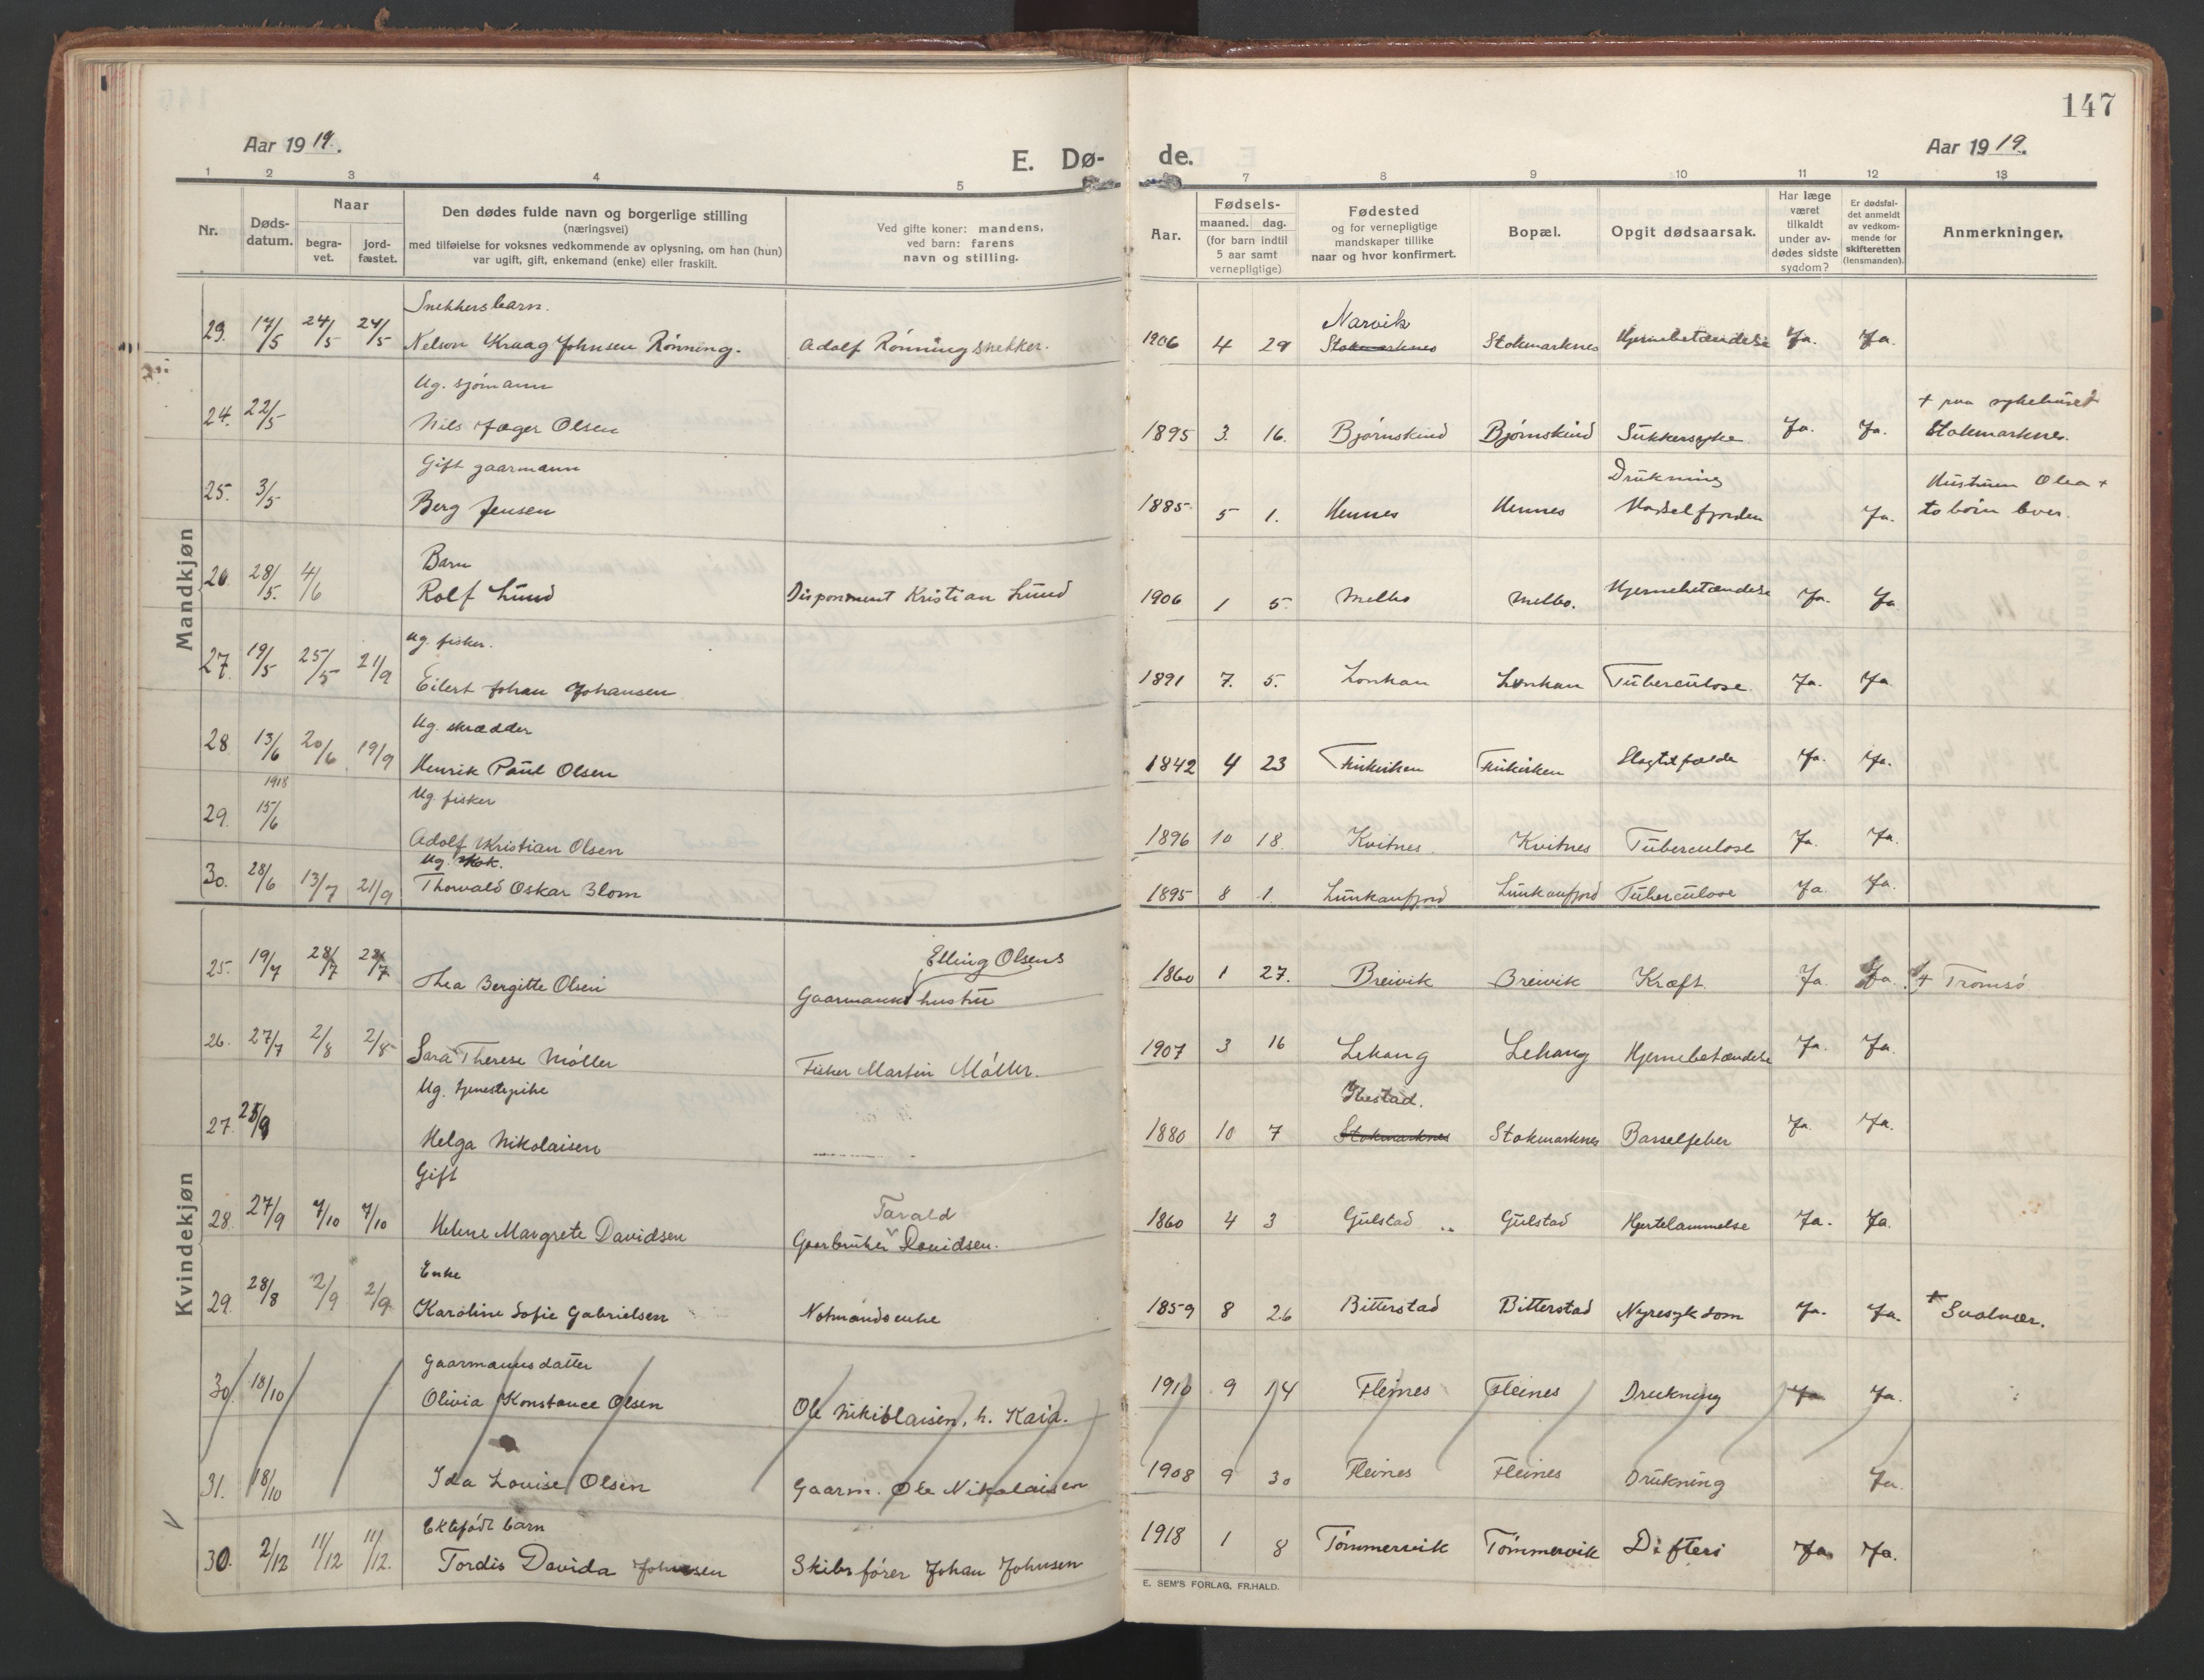 147
Aar 1919.
E. Dø-
de.
Aar 1919.
1 2 3 4 5 7 8 9 10 11 12 13
Nr.
Døds-
datum.
Naar
begra-
vet.
jord-
fæstet.
Den dødes fulde navn og borgerlige stilling
(næringsvei)
med tilføielse for voksnes vedkommende av oplysning, om han (hun)
var ugift, gift, enkemand (enke) eller fraskilt.
Ved gifte koner: mandens,
ved barn: farens
navn og stilling.
Aar.
Fødsels-
maaned. dag.
(for barn indtil
5 aar samt
vernepligtige)
Fødested
og for vernepligtige
mandskaper tillike
naar og hvor konfirmert.
Bopæl.
Opgit dødsaarsak.
Har læge
været
tilkaldt
under av-
dødes sidste
sygdom?
Er dødsfal-
det anmeldt
av vedkom-
mende for
skifteretten
(lensmanden).
Anmerkninger.
Mandkjøn
Snekkersbarn. Narvik
23. 17/5 24/5 24/5 Nelson Kraag Johnsen Rønning. Adolf Rønning snekker. 1906 4 29 Stokmarknes Stokmarknes Hjernebetændelse Ja. Ja.
Ug. sjømann + paa sykehuset
24. 22/5 Nils Jæger Olsen 1895 3. 16. Bjørnskind Bjørnskind Sukkersyke Ja. Ja. Stokmarknes.
Gift gaarmann Drukning Hustruen Olea +
25. 3/5 Berg Jensen 1885 5 1. Hennes Hennes Hadselfjorden Ja. to børn lever.
Barn
26 28/5. 4/6 Rolf Lund Disponent Kristian Lund 1906 1 5. Melbo Melbo. Hjernebetændelse Ja. Ja
Ug. fisker.
27. 19/5 25/5 21/9 Eilert Johan Johansen 1891 7. 5. Lonkan Lonkan Tuberculose Ja. Ja
Ug. skrædder
28 13/6 20/6 19/9 Henrik Paul Olsen 1842 4 23 Frikirken Frikirken Slagtilfælde Ja. Ja.
1918 Ug. fisker
29. 15/6 Adolf Kristian Olsen 1896 10 18. Kvitnes. Kvitnes Tuberculose Ja. Ja.
Ug. Kok.
30. 28/6 13/7 21/9 Thorvald Oskar Blom 1895 8 1. Lunkanfjord Lunkanfjord Tuberculose Ja. Ja.
Kvindekjøn
Elling Olsens
25. 19/7 28/7 28/7 Thea Bergitte Olsen Gaarmanns hustru 1860 1 27. Breivik Breivik Kræft Ja. Ja. + Tromsø
26. 27/7 2/8 2/8 Sara Therese Møller Fisker Martin Møller. 1907 3 16 Lekang Lekang Hjernebetændelse Ja. Ja.
Ug. tjenestepike Ibestad.
27. 25/9 Helga Nikolaisen 1880 10 7 Stokmarknes Stokmarknes Barselfeber Ja. Ja.
Gift Tarald
28. 27/9 7/10 7/10 Helene Margrete Davidsen Gaarbruker Davidsen. 1860 4 3 Gulstad Gulstad Hjertelammelse Ja. Ja.
Enke
29. 28/8 2/9 2/9. Karoline Sofie Gabrielsen Notmandsenke 1859 8 26 Bitterstad Bitterstad Nyresykdom Ja. Ja. + Svolvær.
Gaarmannsdatter
30. 18/10 Olivia Konstance Olsen Ole Nikolaisen, h. Kaia. 1910 9 14 Fleines Fleines Drukning Ja Ja.
31. 18/10 Ida Louise Olsen Gaarm. Ole Nikolaisen 1908 9 30 Fleines Fleines Drukning Ja.
Ektefødt barn
30. 2/12 11/12 11/12. Tordis Davida Johnsen Skibsfører Johan Johnsen 1918 1 8 Tømmervik Tømmervik Difteri Ja Ja.
E. SEM'S FORLAG, FR.HALD.